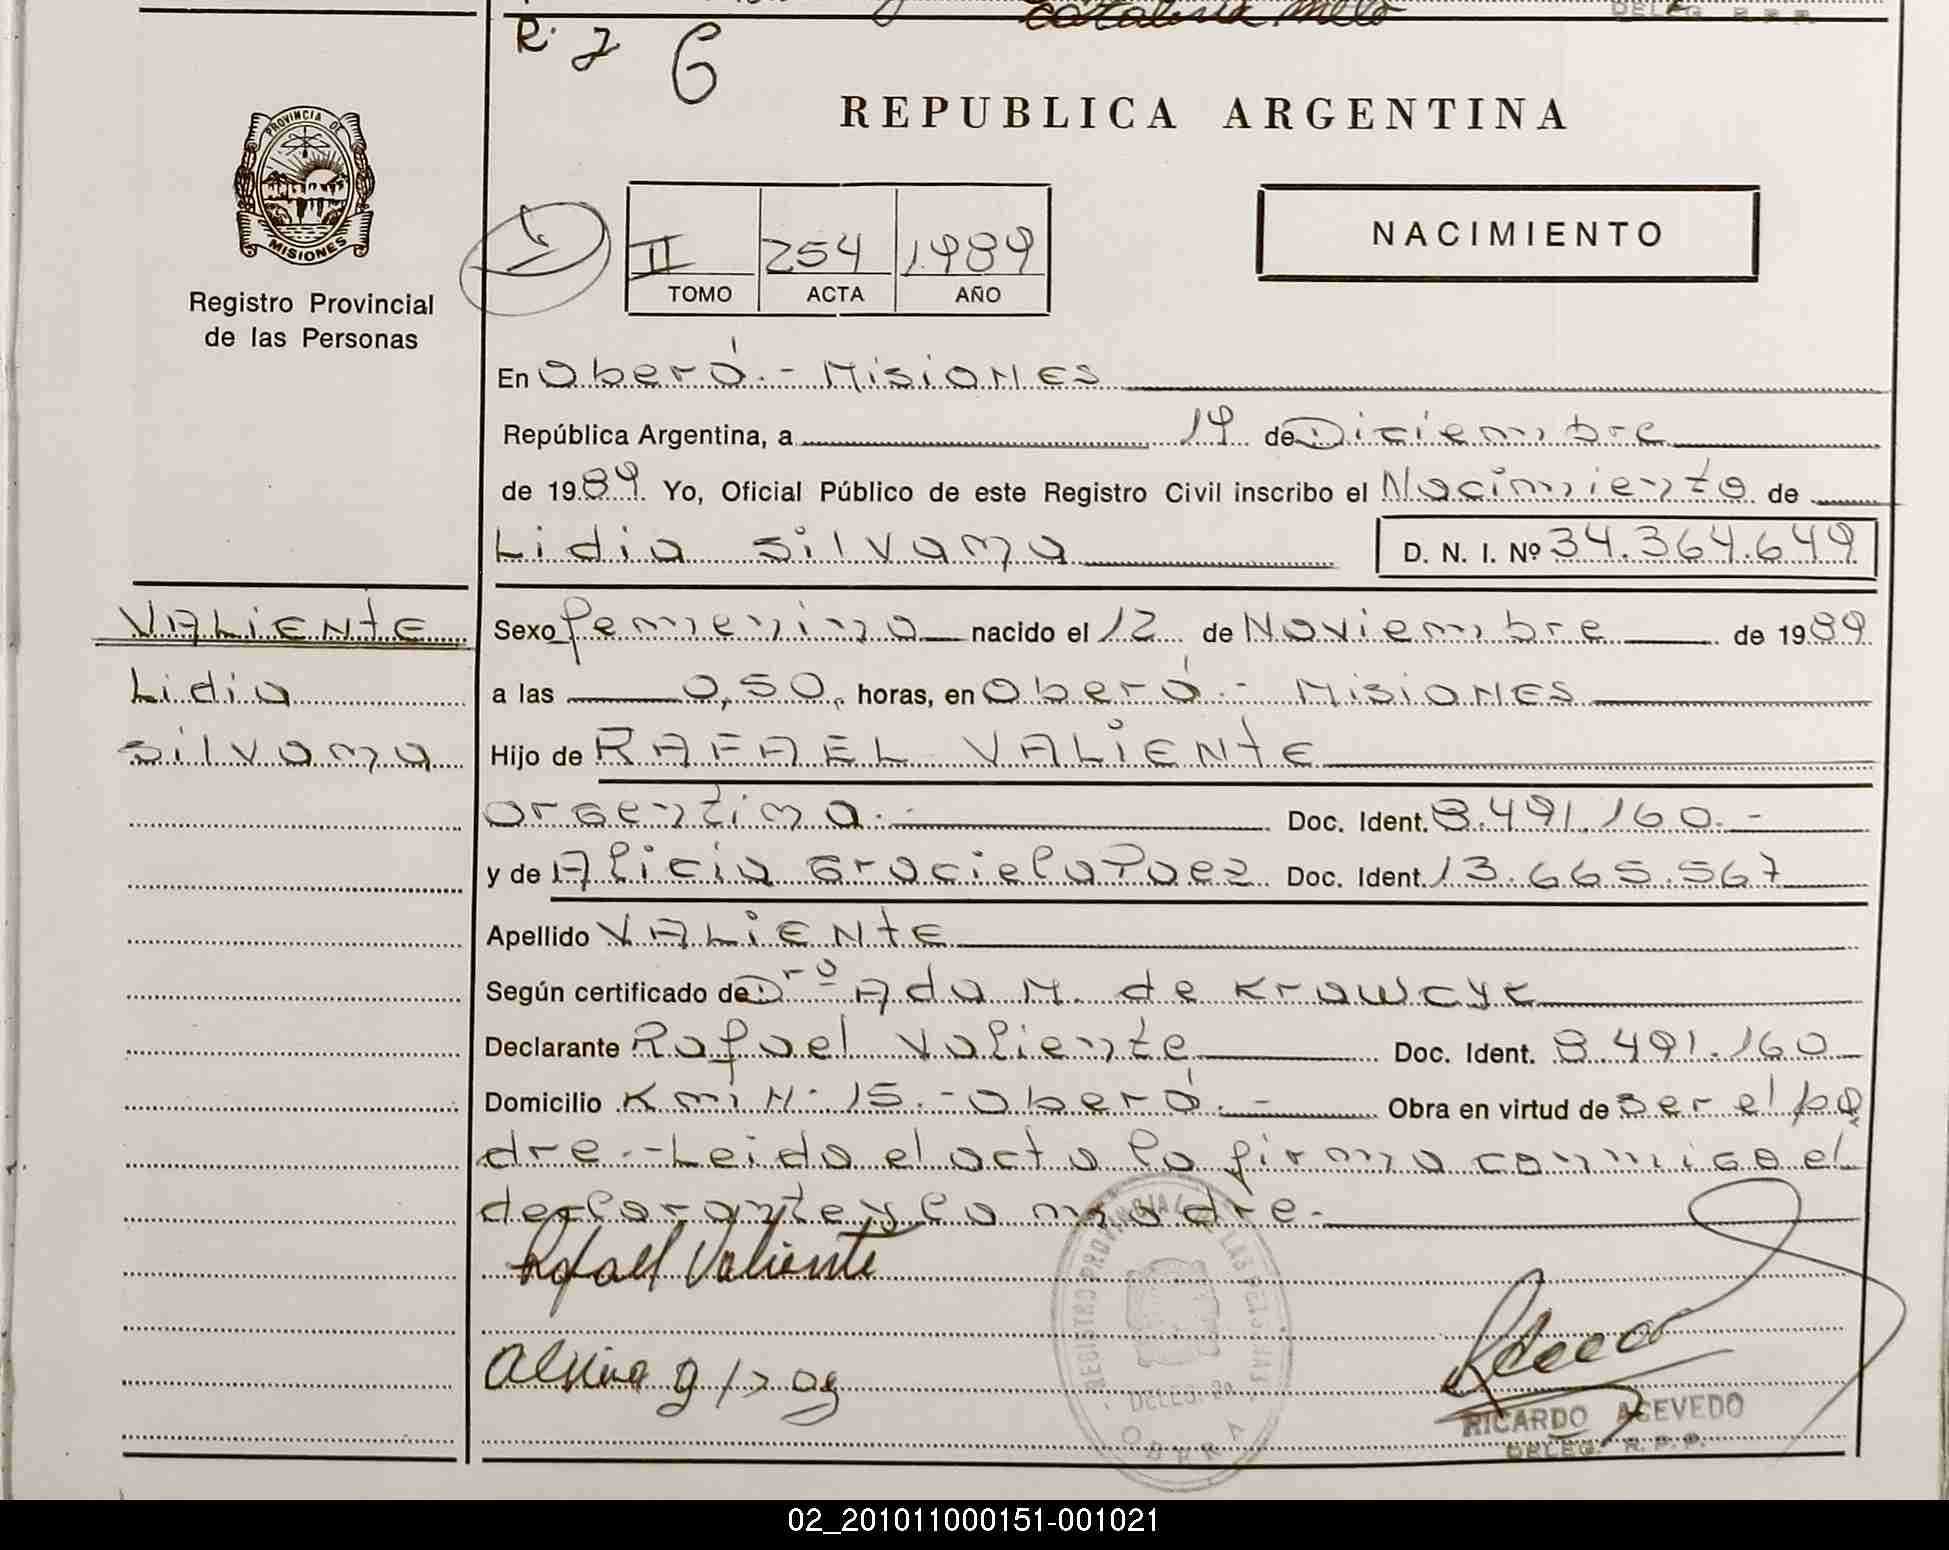 R. J 6
REPUBLICA ARGENTINA
PROVINCIA DE
MISIONES
Registro Provincial
de las Personas
II 254 1989
TOMO ACTA AÑO
NACIMIENTO
En Oberá.- Misiones
República Argentina, a 14 de Diciembre
de 1989 Yo, Oficial Público de este Registro Civil inscribo el Nacimiento de
Lidia Silvana D. N. I. Nº 34.364.649
VALIENTE
Lidia
Silvana
Sexo femenino nacido el 12 de Noviembre de 1989
a las 0,50, horas, en Oberá.- Misiones
Hijo de RAFAEL VALIENTE
argentina.- Doc. Ident. 8.491.160.-
y de Alicia Graciela Paez Doc. Ident. 13.665.567
Apellido VALIENTE
Según certificado de Dra Ada M. de Krawcyk
Declarante Rafael Valiente Doc. Ident. 8.491.160
Domicilio Km. N. 15.- Oberá.- Obra en virtud de ser el pa
dre.- Leida el acta la firma conmigo el
declarante y la madre.
Rafael Valiente
REGISTRO PROVINCIAL DE LAS PERSONAS
DELEG.
OBERA
RICARDO ACEVEDO
DELEG. R. P. P.
02_201011000151-001021